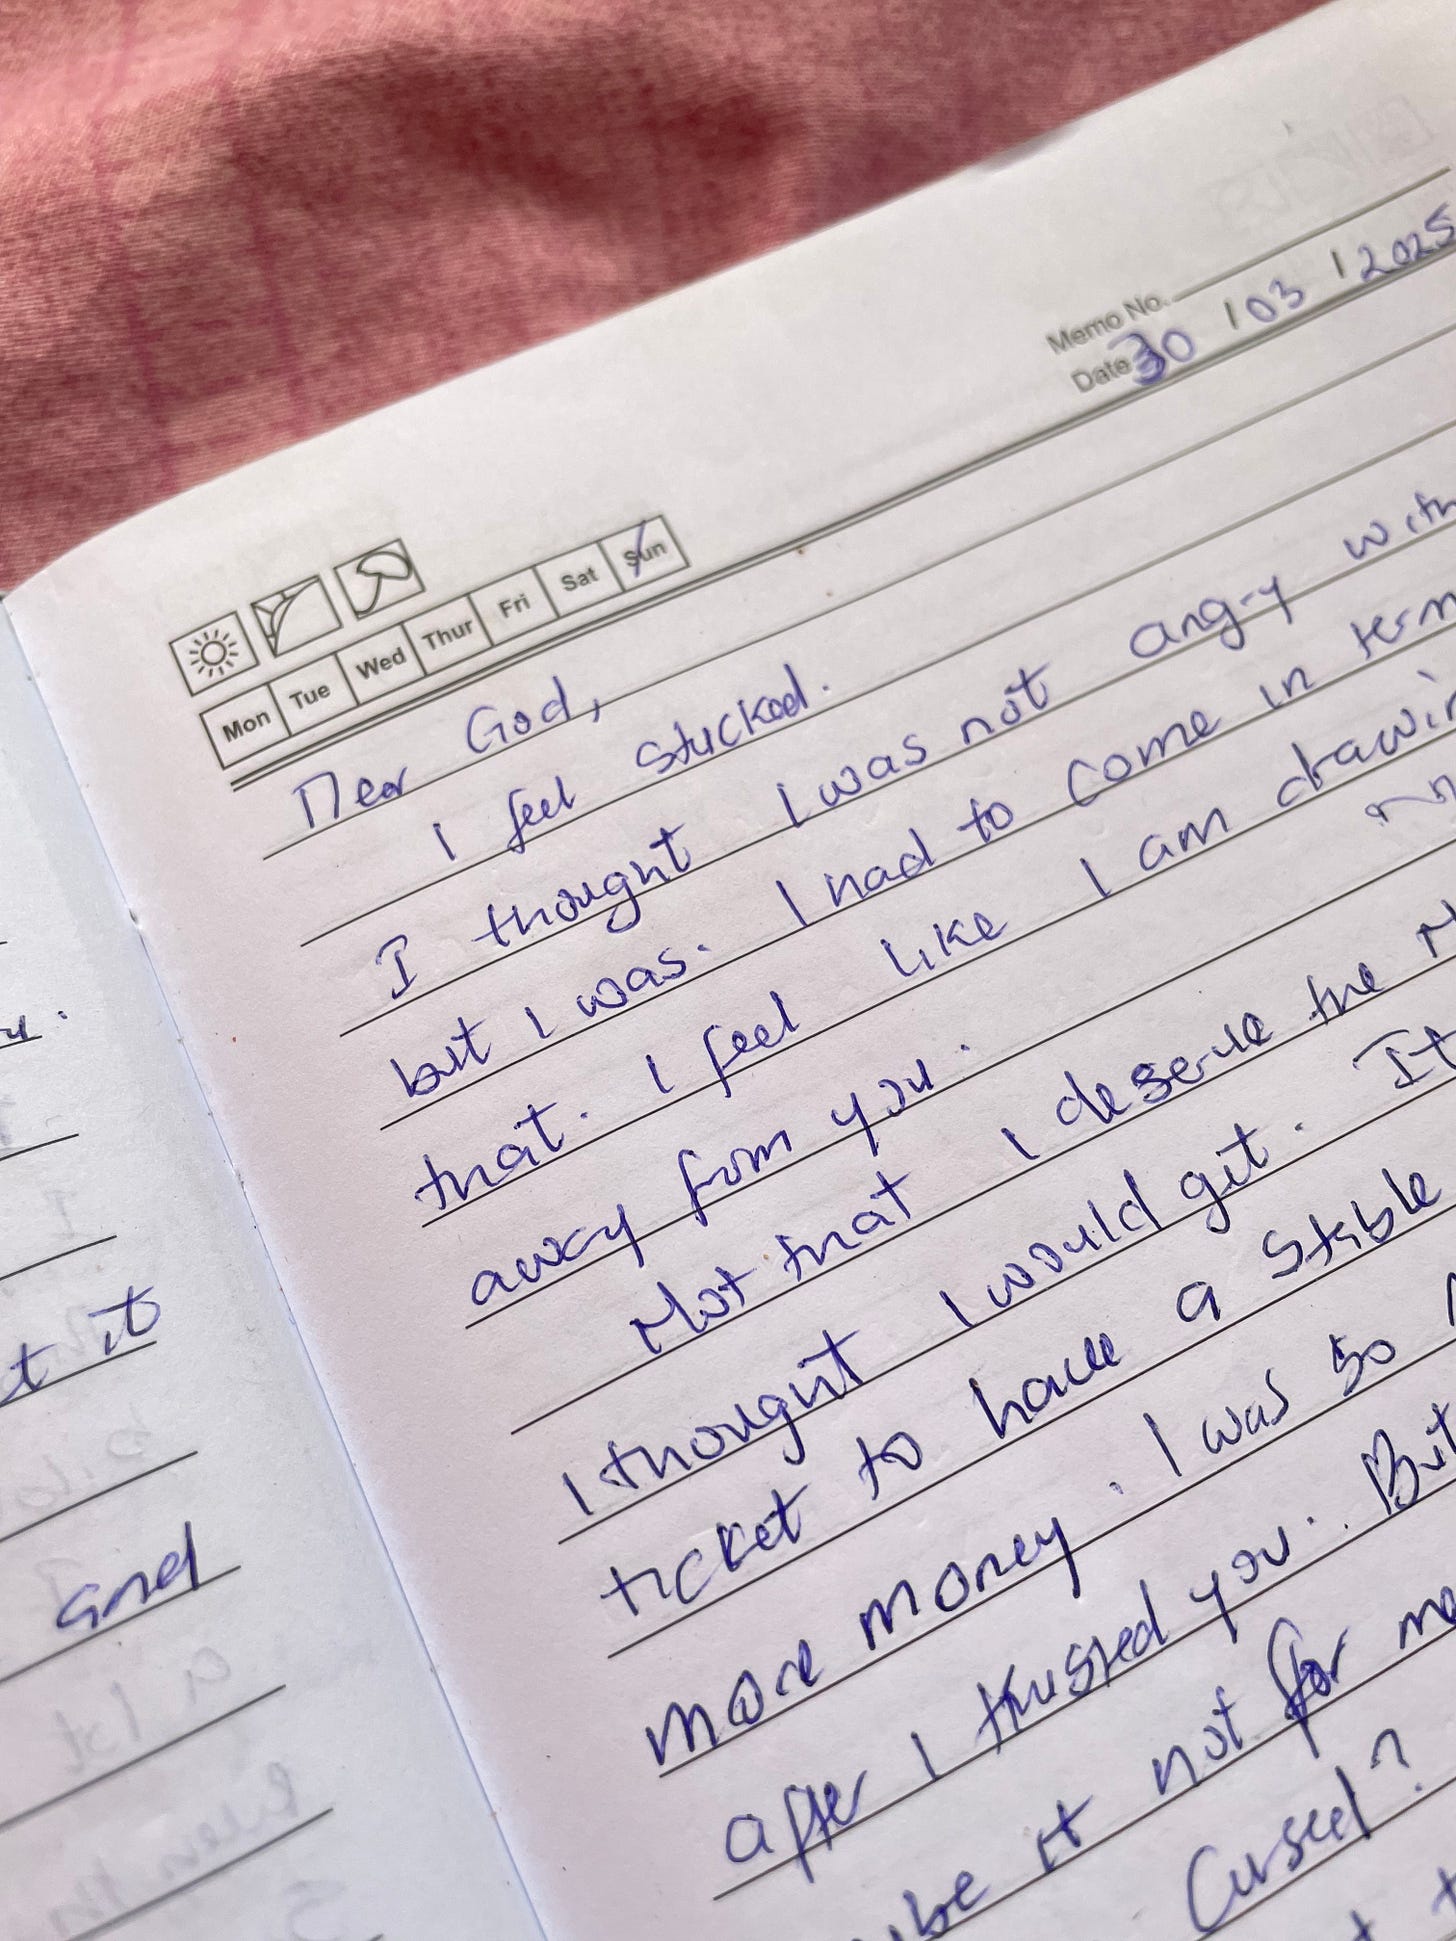 Memo No.
Date 30 / 03 / 2025
Mon Tue Wed Thur Fri Sat Sun
Dear God,
I feel stucked.
I thought I was not angry with
but I was. I had to come in term
that. I feel like I am drawin
away from you.
Not that I deserve the
I thought I would get. It
ticket to have a stable
more money. I was so
after I trusted you.. But
be it not for me
Cursed?
t it
and